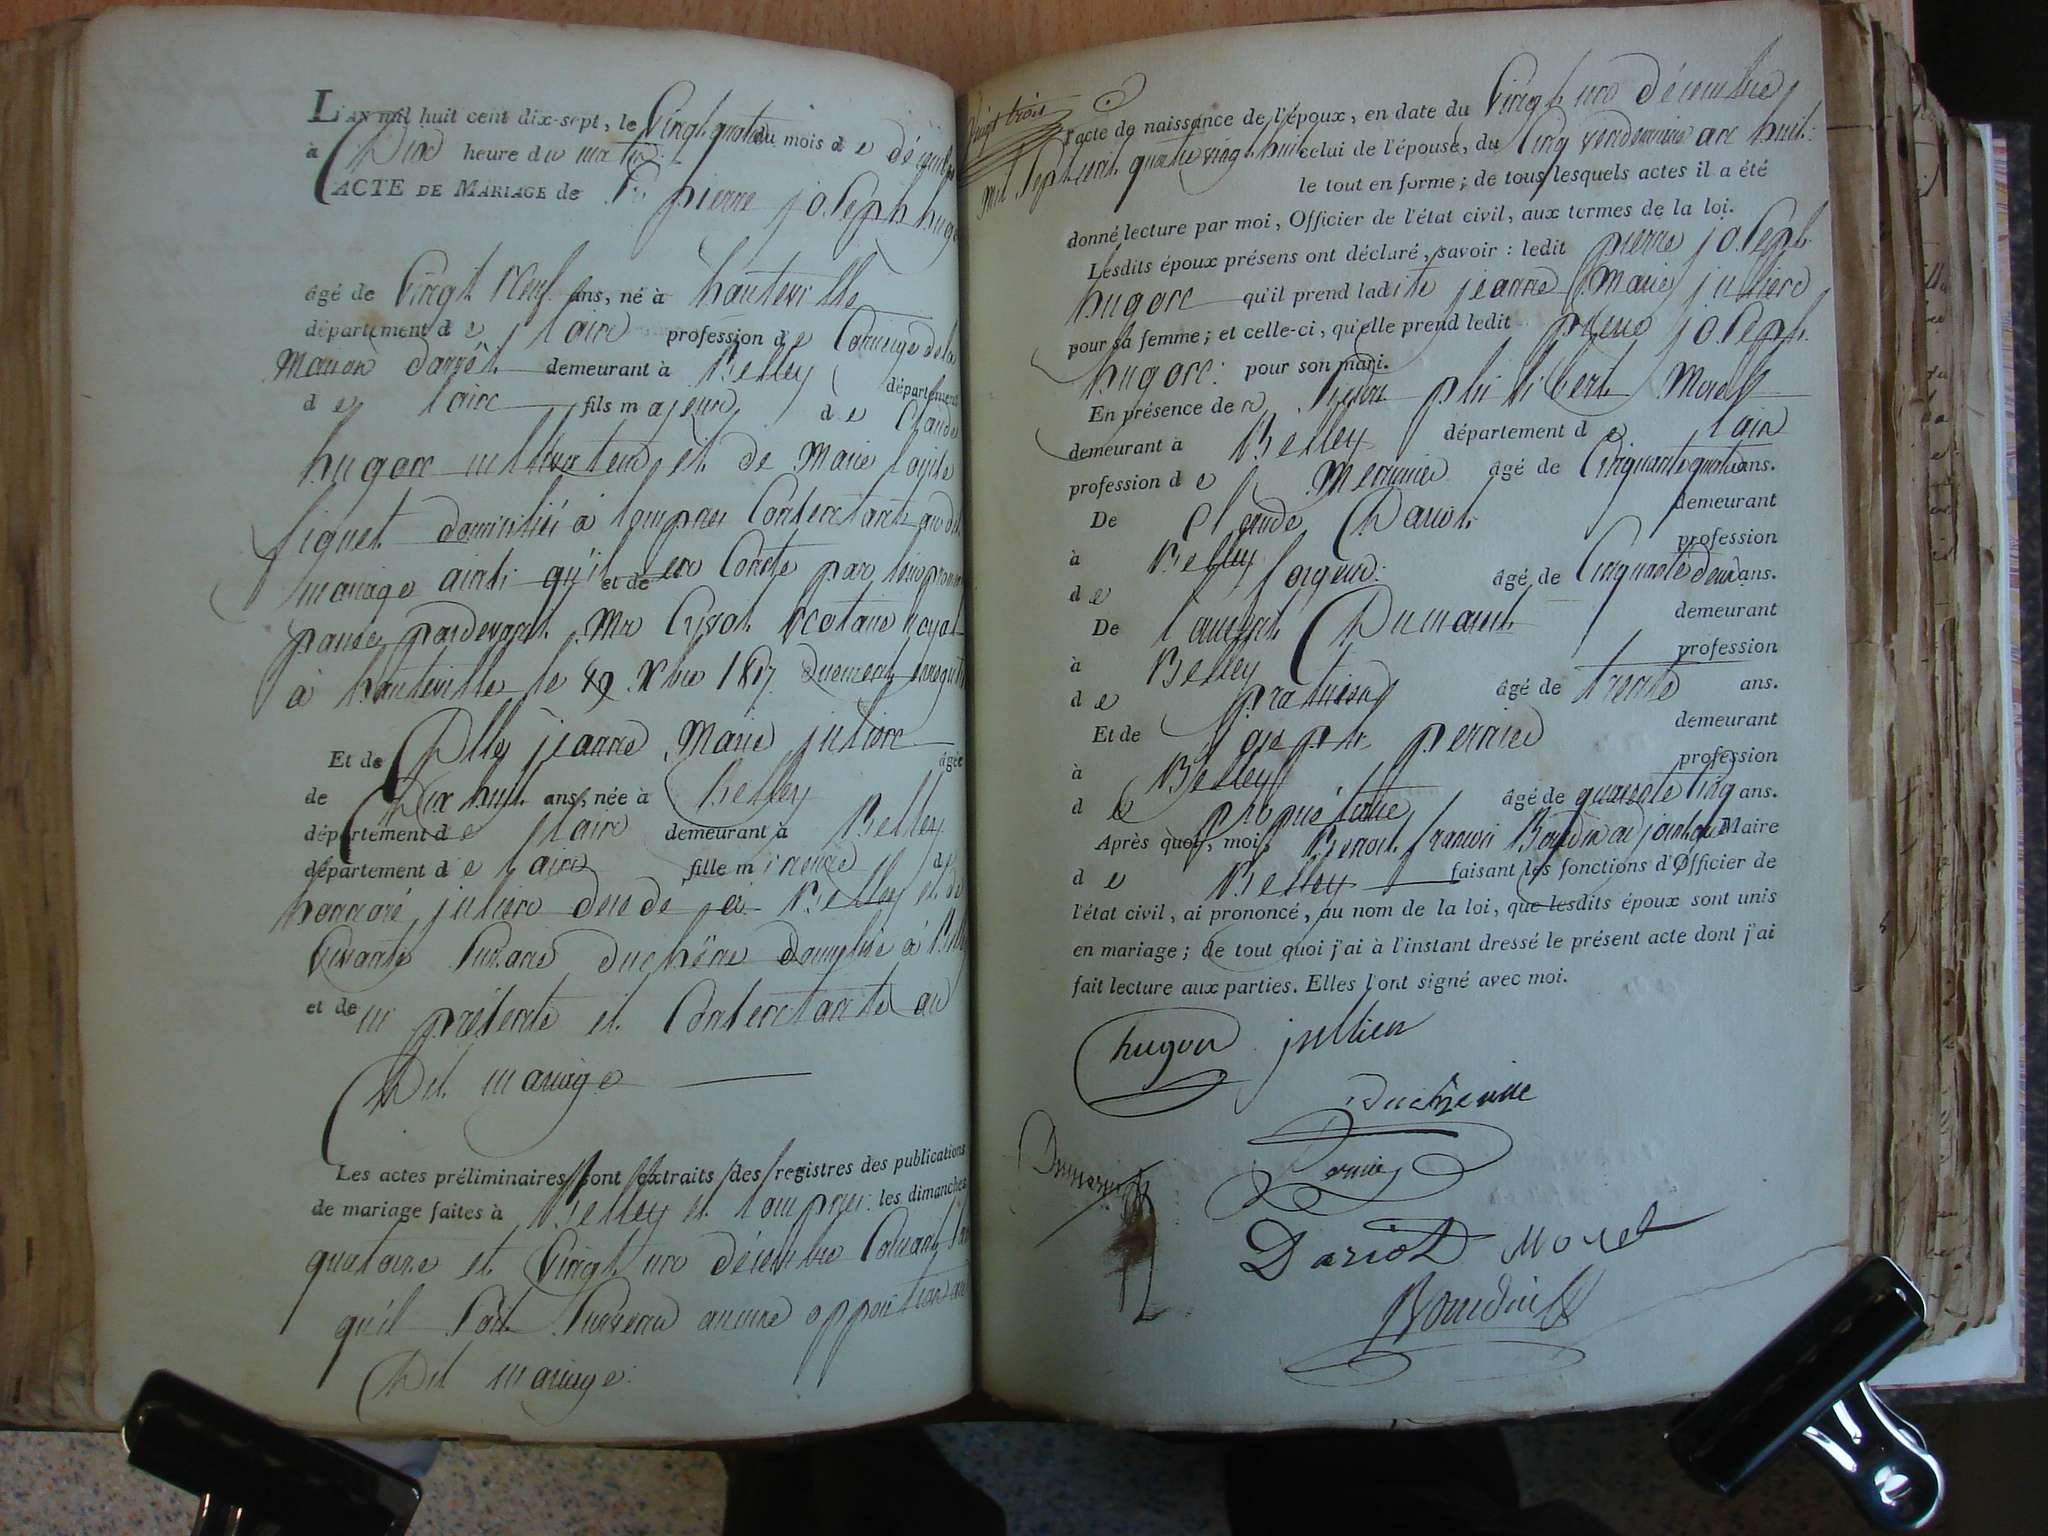 L'AN mil huit cent dix-sept, le Vingt quatre du mois d e décembre
à Dix heure du matin
ACTE DE MARIAGE de Sr pierre joseph hugon
âgé de Vingt Neuf ans, né à hauteville
département d e lain profession d e Concierge de la
Maison d'arrêt demeurant à Belley département
d e lain fils m ajeur d e Claude
hugon cultivateur et de Marie
domiciliés à Consentants audit
mariage ainsi qu'il en Conste par
passée pardevant Me Notaire Royal
à hauteville le Xbre 1817 duement enregistré
Et de Dlle jeanne Marie jullien âgée
de Dix huit ans, née à belley
département d e lain demeurant à Belley
département d e lain fille m ineure de
honnoré jullien à Belley et de
Vivante Suzanne duchêne domiciliée à Belley
et de ici présente et Consentante au
Dit mariage
Les actes préliminaires sont extraits des registres des publications
de mariage faites à Belley et les dimanches
quatorze et Vingt un décembre Courant Sans
qu'il Soit Survenu aucune opposition au
Dit mariage
Vingt trois
l'acte de naissance de l'époux, en date du Vingt un décembre
mil Sept cent quatre vingt huit celui de l'épouse, du Cinq vendemiaire an huit
le tout en forme; de tous lesquels actes il a été
donné lecture par moi, Officier de l'état civil, aux termes de la loi.
Lesdits époux présens ont déclaré, savoir : ledit pierre joseph
hugon qu'il prend ladite jeanne Marie jullien
pour sa femme; et celle-ci, qu'elle prend ledit pierre joseph
hugon pour son mari.
En présence de philibert Morel
demeurant à Belley département d e lain
profession d e âgé de Cinquante quatre ans.
De Claude Dariot demeurant
à Belley profession
d e âgé de Cinquante deux ans.
De laurent Dumarest demeurant
à Belley profession
d e praticien âgé de trente ans.
Et de joseph pernier demeurant
à Belley profession
d e propriétaire âgé de quarante Cinq ans.
Après quoi, moi, Benoit françois adjoint au Maire
d e Belley faisant les fonctions d'Officier de
l'état civil, ai prononcé, au nom de la loi, que lesdits époux sont unis
en mariage; de tout quoi j'ai à l'instant dressé le présent acte dont j'ai
fait lecture aux parties. Elles l'ont signé avec moi.
hugon jullien
Duchenne
Dariot Morel